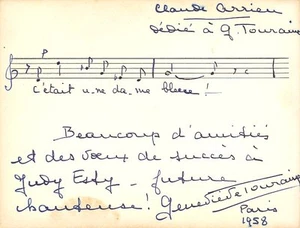 Claude Arrieu
dédié à G. Touraine
P
c'était u-ne da-me bleue!
Beaucoup d'amitiés
et des vœux de succès à
Judy Esty - future
chanteuse! Geneviève Touraine
Paris
1958